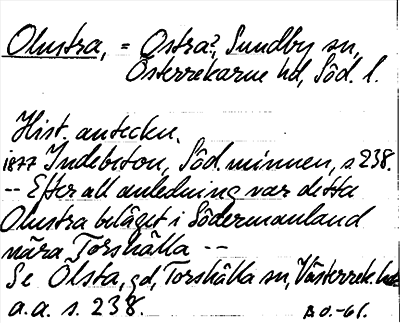 Olustra, = Ostra?, Sundby sn,
Österrekarne hd, Söd. l.
Hist. anteckn.
1877 Indebetou, Söd. minnen, s 238.
-- Efter all anledning var detta
Olustra beläget i Södermanland
nära Torshälla --
Se Ölsta, gd, Torshälla sn, Västerrek. hd
a.a. s. 238.